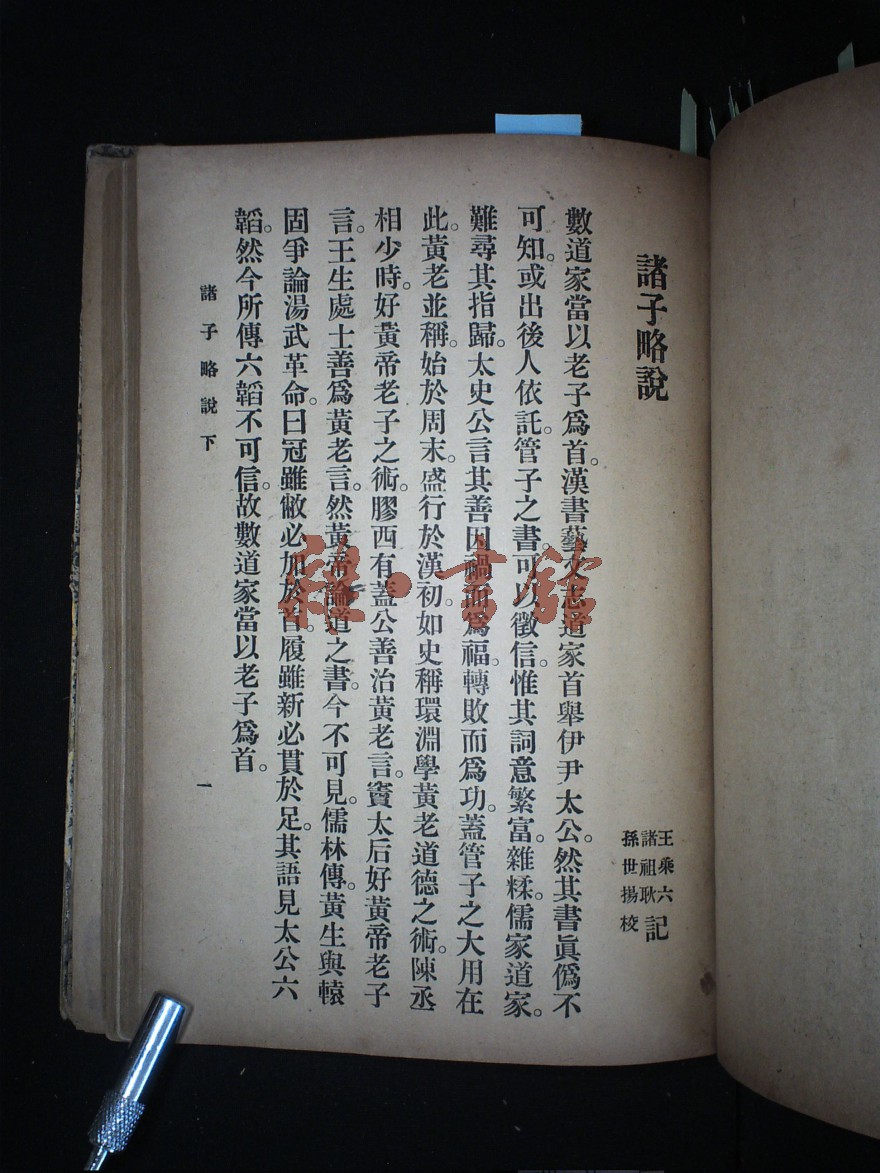 諸子略說
王乘六
諸祖耿 記
孫世揚 校
數道家當以老子爲首。漢書藝文志道家首舉伊尹太公。然其書眞僞不
可知。或出後人依託。管子之書。可以徵信。惟其詞意繁富。雜糅。儒家道家。
難尋其指歸。太史公言其善因禍而爲福。轉敗而爲功。蓋管子之大用在
此。黃老並稱。始於周末。盛行於漢初。如史稱環淵學黃老道德之術。陳丞
相少時。好黃帝老子之術。膠西有蓋公善治黃老言。竇太后好黃帝老子
言。王生處士善爲黃老言。然黃帝論道之書。今不可見。儒林傳。黃生與轅
固爭論湯武革命。曰冠雖敝必加於首。履雖新必貫於足。其語見太公六
韜。然今所傳六韜不可信。故數道家當以老子爲首。
諸子略說下
一
雜·書館